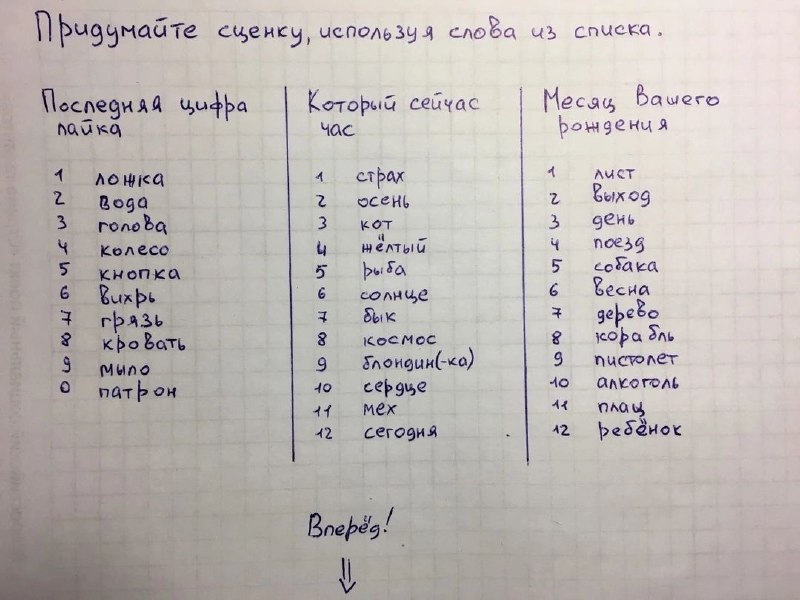 Придумайте сценку, используя слова из списка.
Последняя цифра
лайка
1 ложка
2 вода
3 голова
4 колесо
5 кнопка
6 вихрь
7 грязь
8 кровать
9 мыло
0 патрон
Который сейчас
час
1 страх
2 осень
3 кот
4 жёлтый
5 рыба
6 солнце
7 бык
8 космос
9 блондин(-ка)
10 сердце
11 мех
12 сегодня
Месяц Вашего
рождения
1 лист
2 выход
3 день
4 поезд
5 собака
6 весна
7 дерево
8 корабль
9 пистолет
10 алкоголь
11 плащ
12 ребёнок
Вперёд!